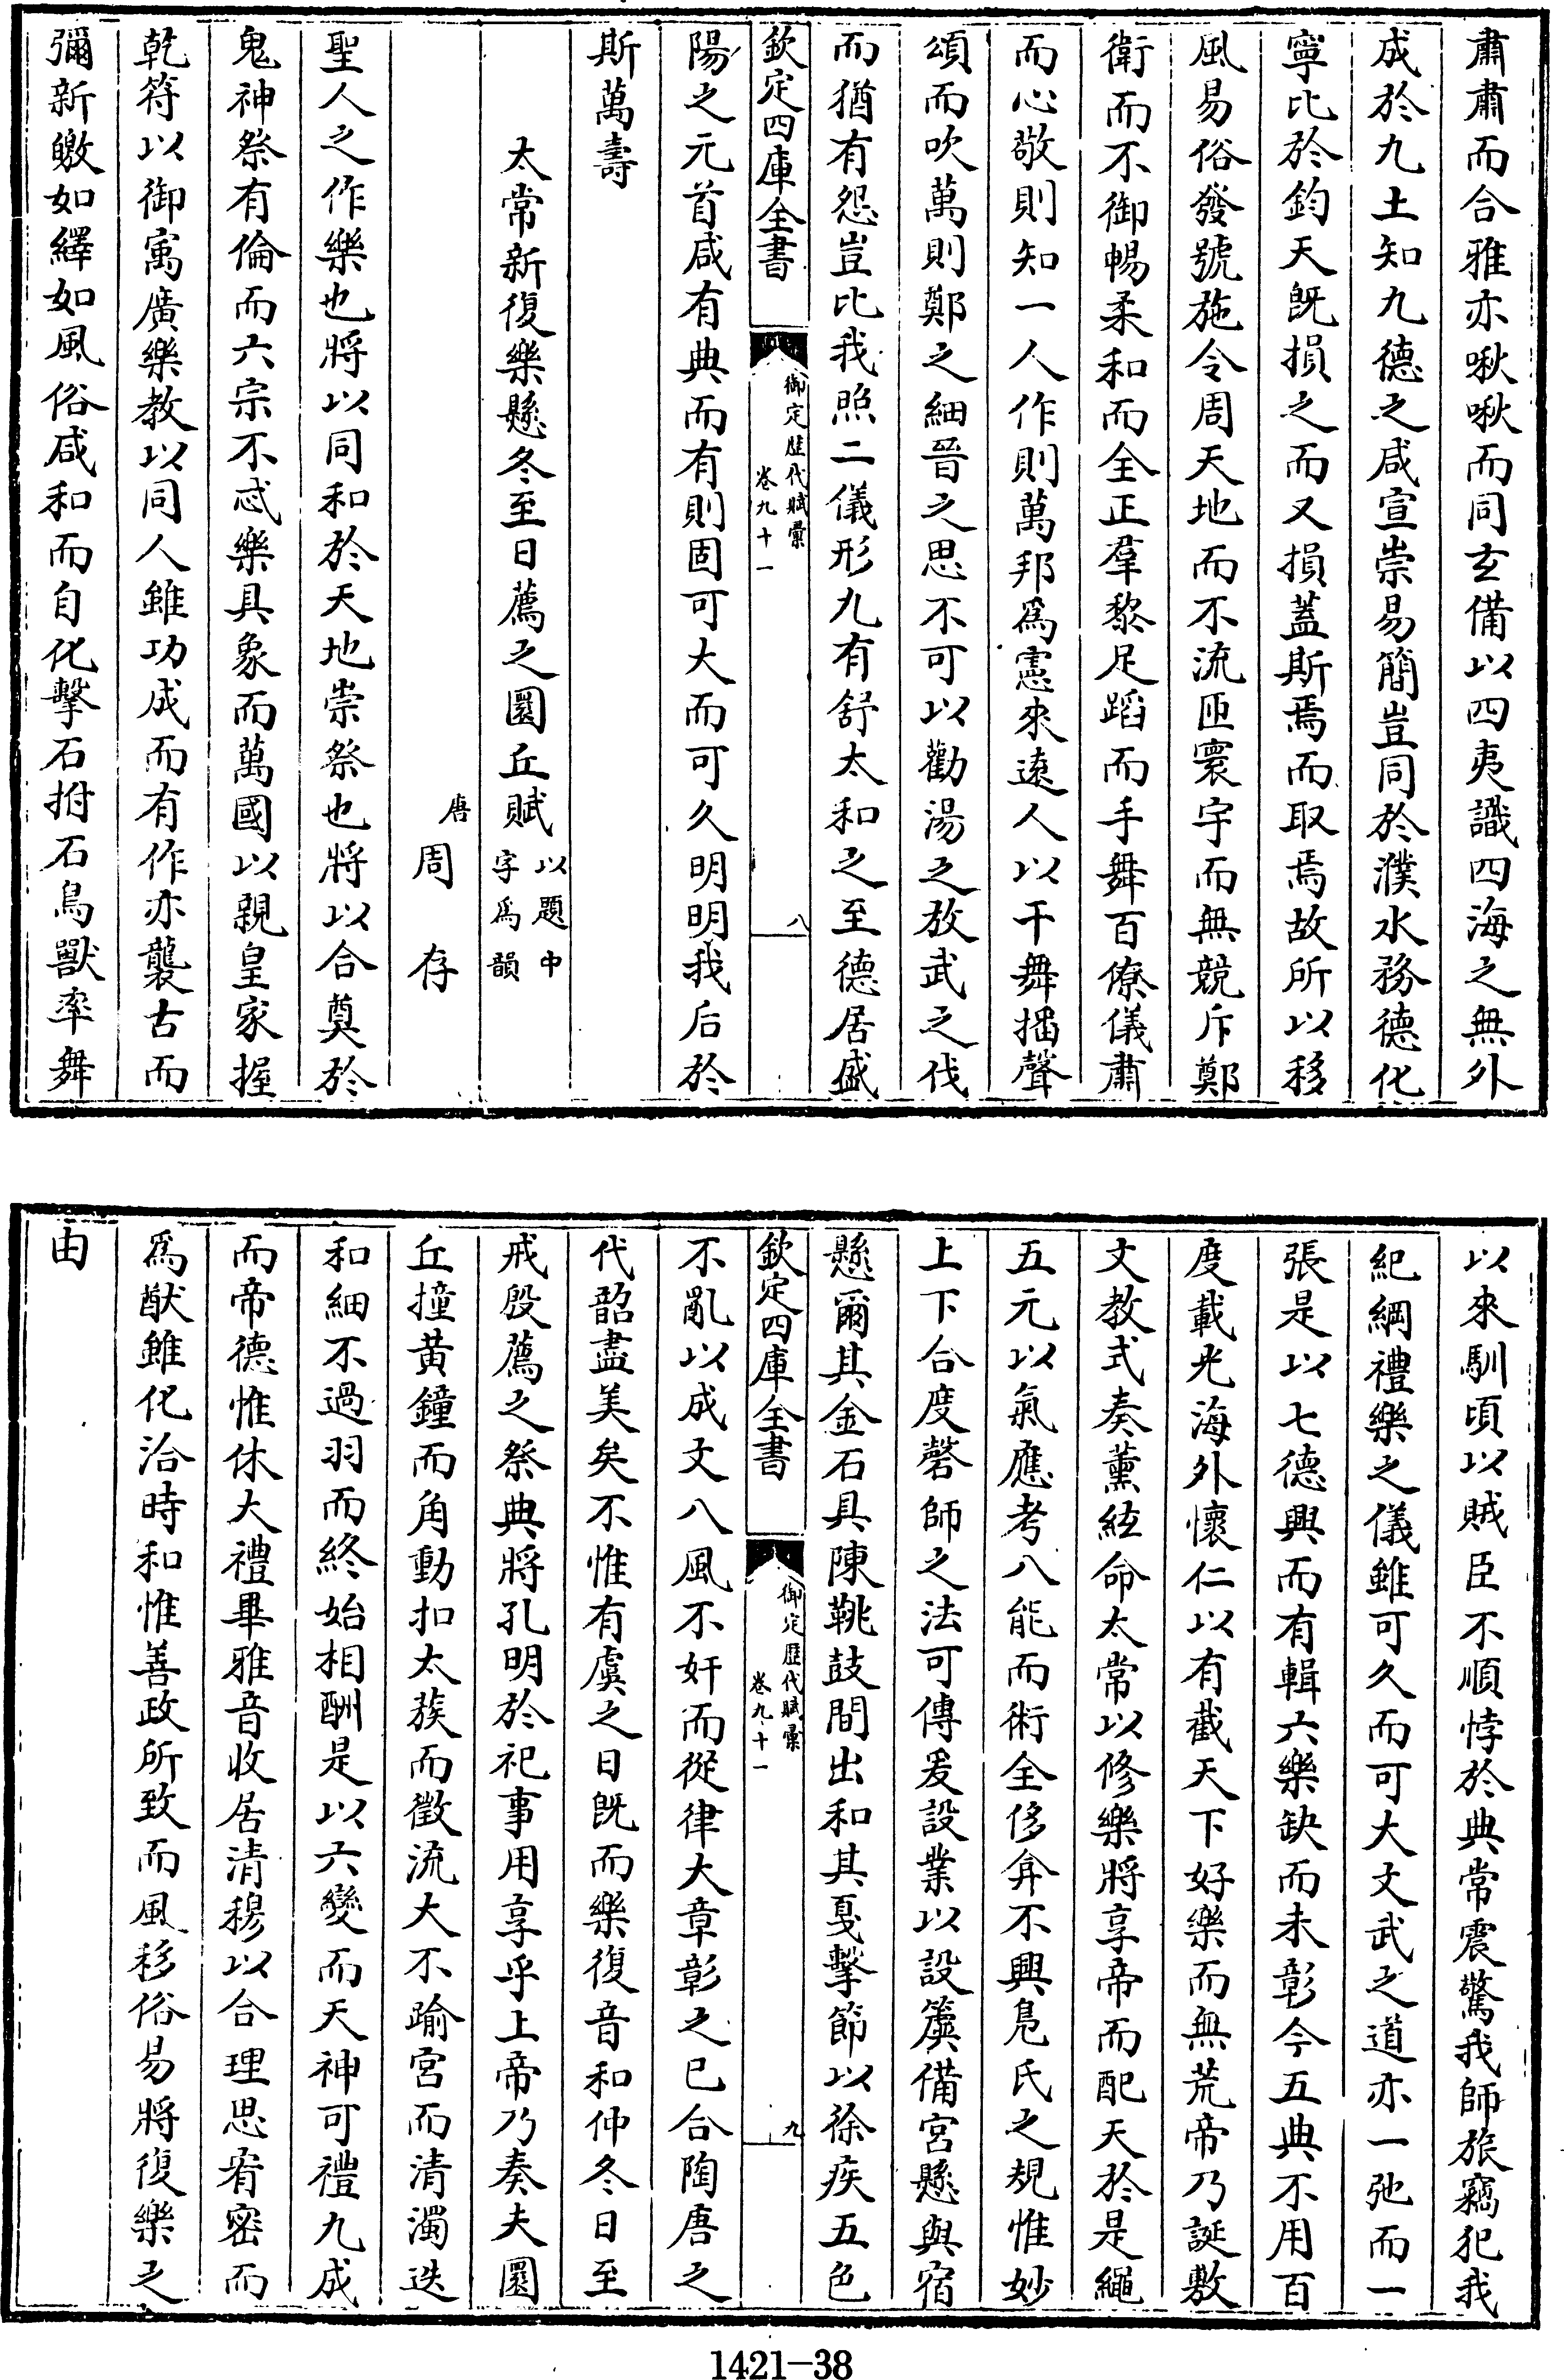 肅肅而合雅亦啾啾而同玄備以四夷識四海之無外
成於九土知九德之咸宣崇易簡豈同於濮水務德化
寧比於鈞天既損之而又損蓋斯焉而取焉故所以移
風易俗發號施令周天地而不流匝寰宇而無競斥鄭
衛而不御暢柔和而全正羣黎足蹈而手舞百僚儀肅
而心敬則知一人作則萬邦爲憲來遠人以干舞播聲
頌而吹萬則鄭之細晉之思不可以勸湯之放武之伐
而猶有怨豈比我照二儀形九有舒太和之至德居盛
欽定四庫全書
御定歷代賦彙
卷九十一
八
陽之元首咸有典而有則固可大而可久明明我后於
斯萬壽
太常新復樂懸冬至日薦之圜丘賦以題中字爲韻
唐周存
聖人之作樂也將以同和於天地崇祭也將以合奠於
鬼神祭有倫而六宗不忒樂具象而萬國以親皇家握
乾符以御寓廣樂教以同人雖功成而有作亦襲古而
彌新皦如繹如風俗咸和而自化擊石拊石鳥獸率舞
以來馴頃以賊臣不順悖於典常震驚我師旅竊犯我
紀綱禮樂之儀雖可久而可大文武之道亦一弛而一
張是以七德興而有輯六樂缺而未彰今五典不用百
度載光海外懷仁以有截天下好樂而無荒帝乃誕敷
文教式奏薰絃命太常以修樂將享帝而配天於是繩
五元以氣應考八能而術全侈弇不興鳧氏之規惟妙
上下合度磬師之法可傳爰設業以設簴備宮懸與宿
懸爾其金石具陳鞉鼓間出和其戛擊節以徐疾五色
欽定四庫全書
御定歷代賦彙
卷九十一
九
不亂以成文八風不奸而從律大章彰之已合陶唐之
代韶盡美矣不惟有虞之日既而樂復音和仲冬日至
戒殷薦之祭典將孔明於祀事用享乎上帝乃奏夫圜
丘撞黃鐘而角動扣太蔟而徵流大不踰宮而清濁迭
和細不過羽而終始相酬是以六變而天神可禮九成
而帝德惟休大禮畢雅音收居清穆以合理思宥密而
爲猷雖化洽時和惟善政所致而風移俗易將復樂之
由
1421-38